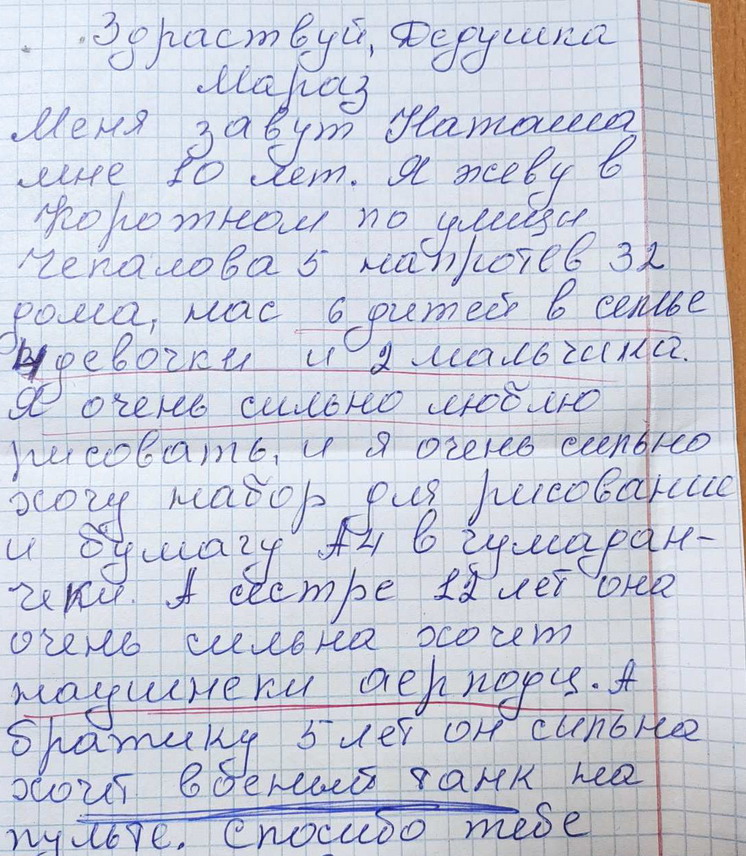 Здраствуй, Дедушка
Мараз
Меня завут Наташа
мне 10 лет. Я жеву в
Коротном по улици
Чепалова 5 напротев 32
дома, нас 6 дитей в семье
4 девочки и 2 мальчика.
Я очень сильно люблю
рисовать, и я очень сильно
хочу набор для рисование
и бумагу А4 в
чеки. А сестре 12 лет она
очень сильна хочет
наушнеки аерподц. А
братику 5 лет он сильна
хочет вбеный танк на
пульте. Спосибо тебе